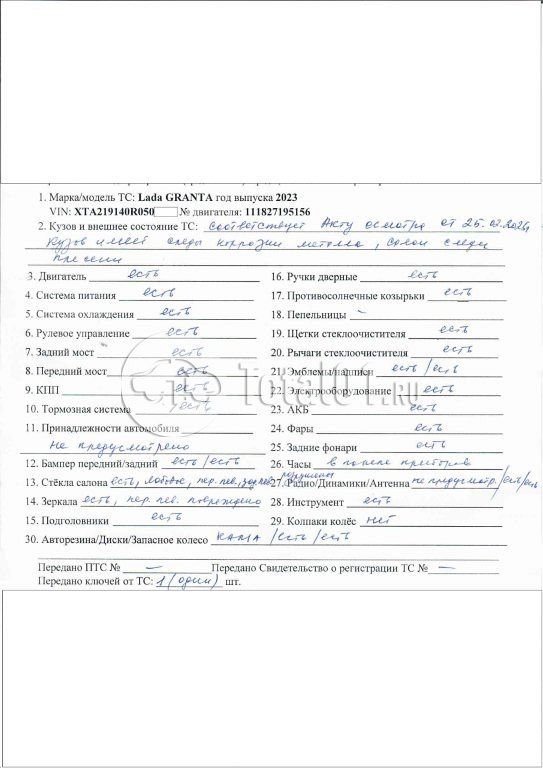 1. Марка/модель ТС: Lada GRANTA год выпуска 2023
VIN: XTA219140R050 № двигателя: 111827195156
2. Кузов и внешнее состояние ТС: соответствует Акту осмотра от 25.02.2024
Кузов имеет следы коррозии металла, салон следы
плесени
3. Двигатель есть 16. Ручки дверные есть
4. Система питания есть 17. Противосолнечные козырьки есть
5. Система охлаждения есть 18. Пепельницы –
6. Рулевое управление есть 19. Щетки стеклоочистителя есть
7. Задний мост есть 20. Рычаги стеклоочистителя есть
8. Передний мост есть 21. Эмблемы/надписи есть/есть
9. КПП есть 22. Электрооборудование есть
10. Тормозная система есть 23. АКБ есть
11. Принадлежности автомобиля 24. Фары есть
не предусмотрено 25. Задние фонари есть
12. Бампер передний/задний есть/есть 26. Часы в панели приборов
13. Стёкла салона есть, лобовое, пер. лев, 27. Радио/Динамики/Антенна не предусмотр./есть/есть
14. Зеркала есть, пер. лев. повреждено 28. Инструмент есть
15. Подголовники есть 29. Колпаки колёс нет
30. Авторезина/Диски/Запасное колесо КАМА /есть /есть
Передано ПТС № – Передано Свидетельство о регистрации ТС № –
Передано ключей от ТС: 1 (один) шт.
Total01.RU